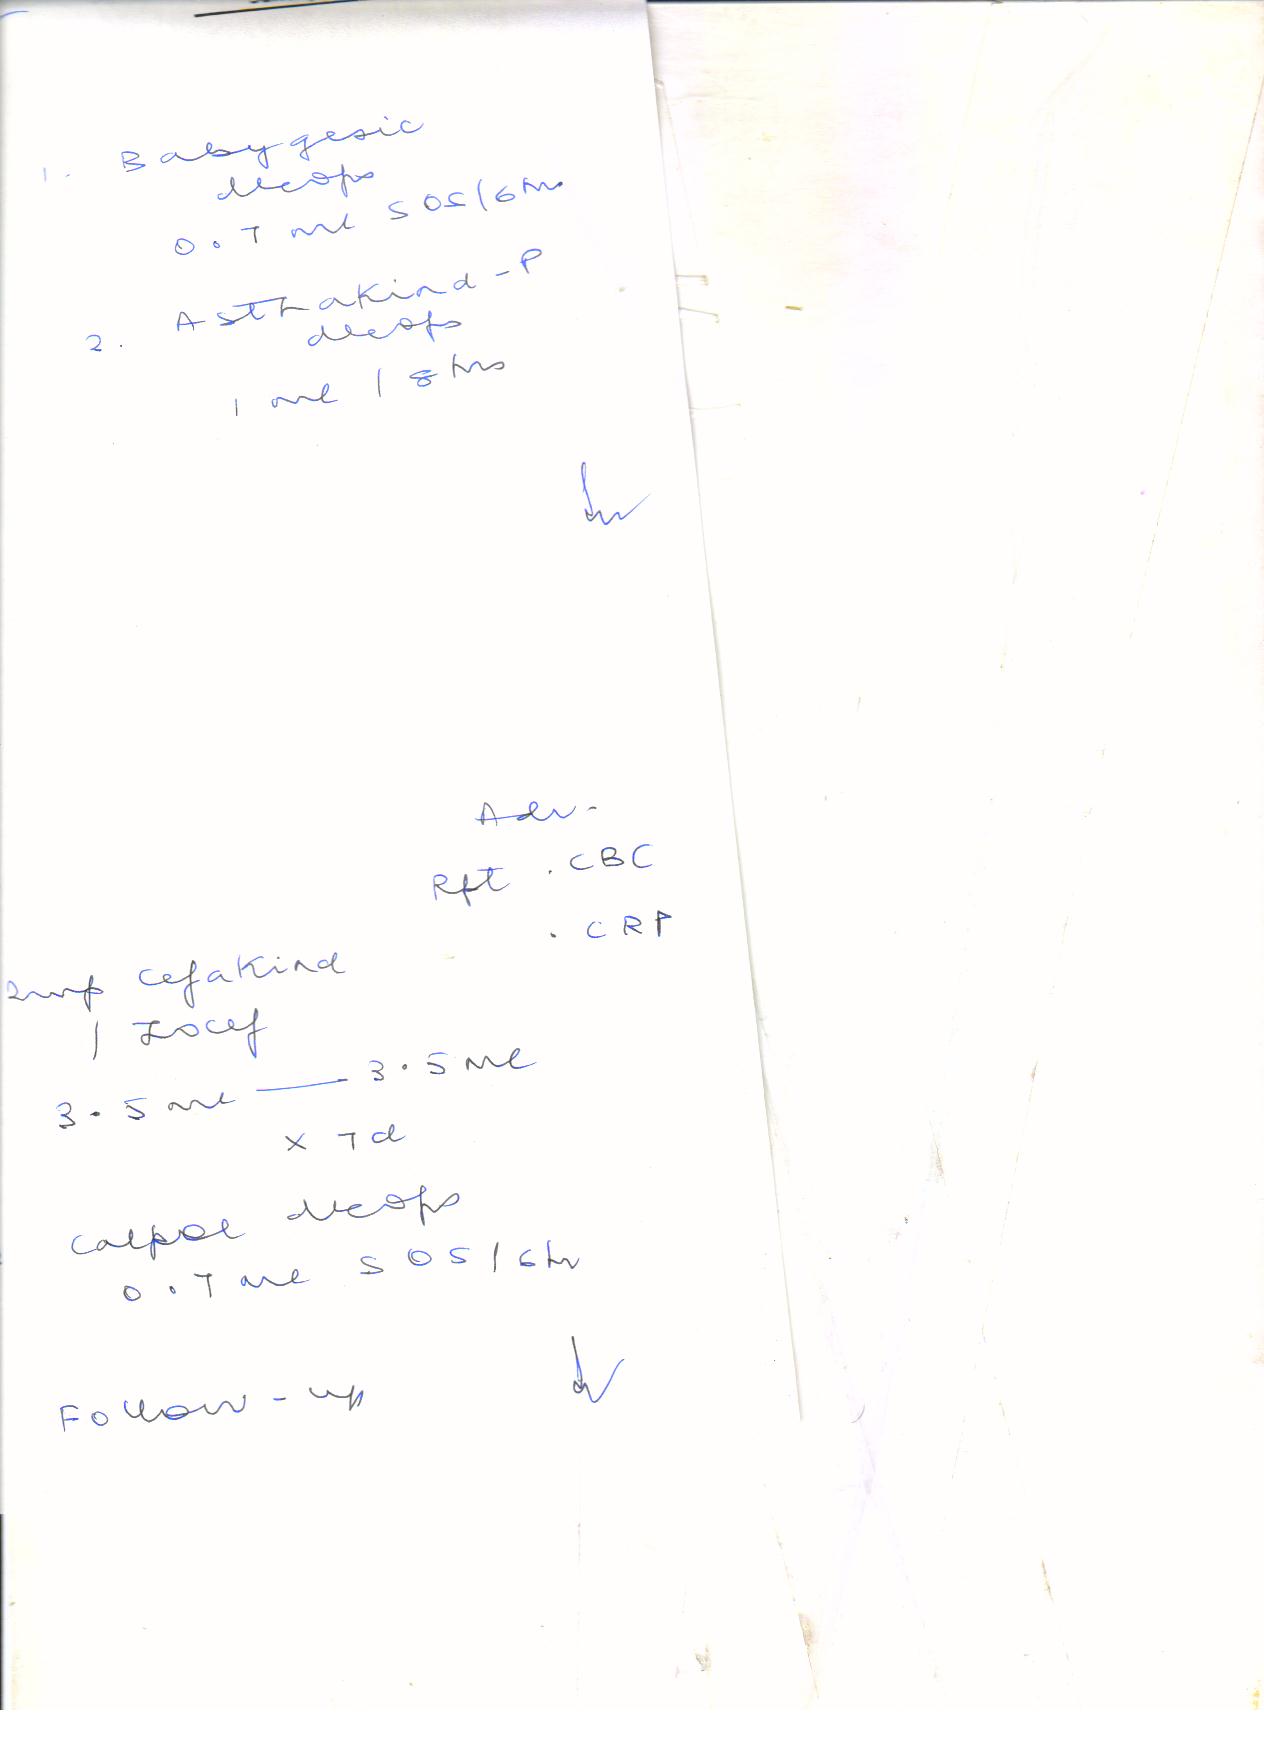 1. Babygesic
drops
0.7 ml SOS/6hrs
2. Asthakind-P
drops
1 ml / 8 hrs
Adv-
Rpt . CBC
. CRP
cefakind
/ Zocef
3.5 ml — 3.5 ml
x 7d
Calpol drops
0.7 ml SOS/6hr
Follow-up